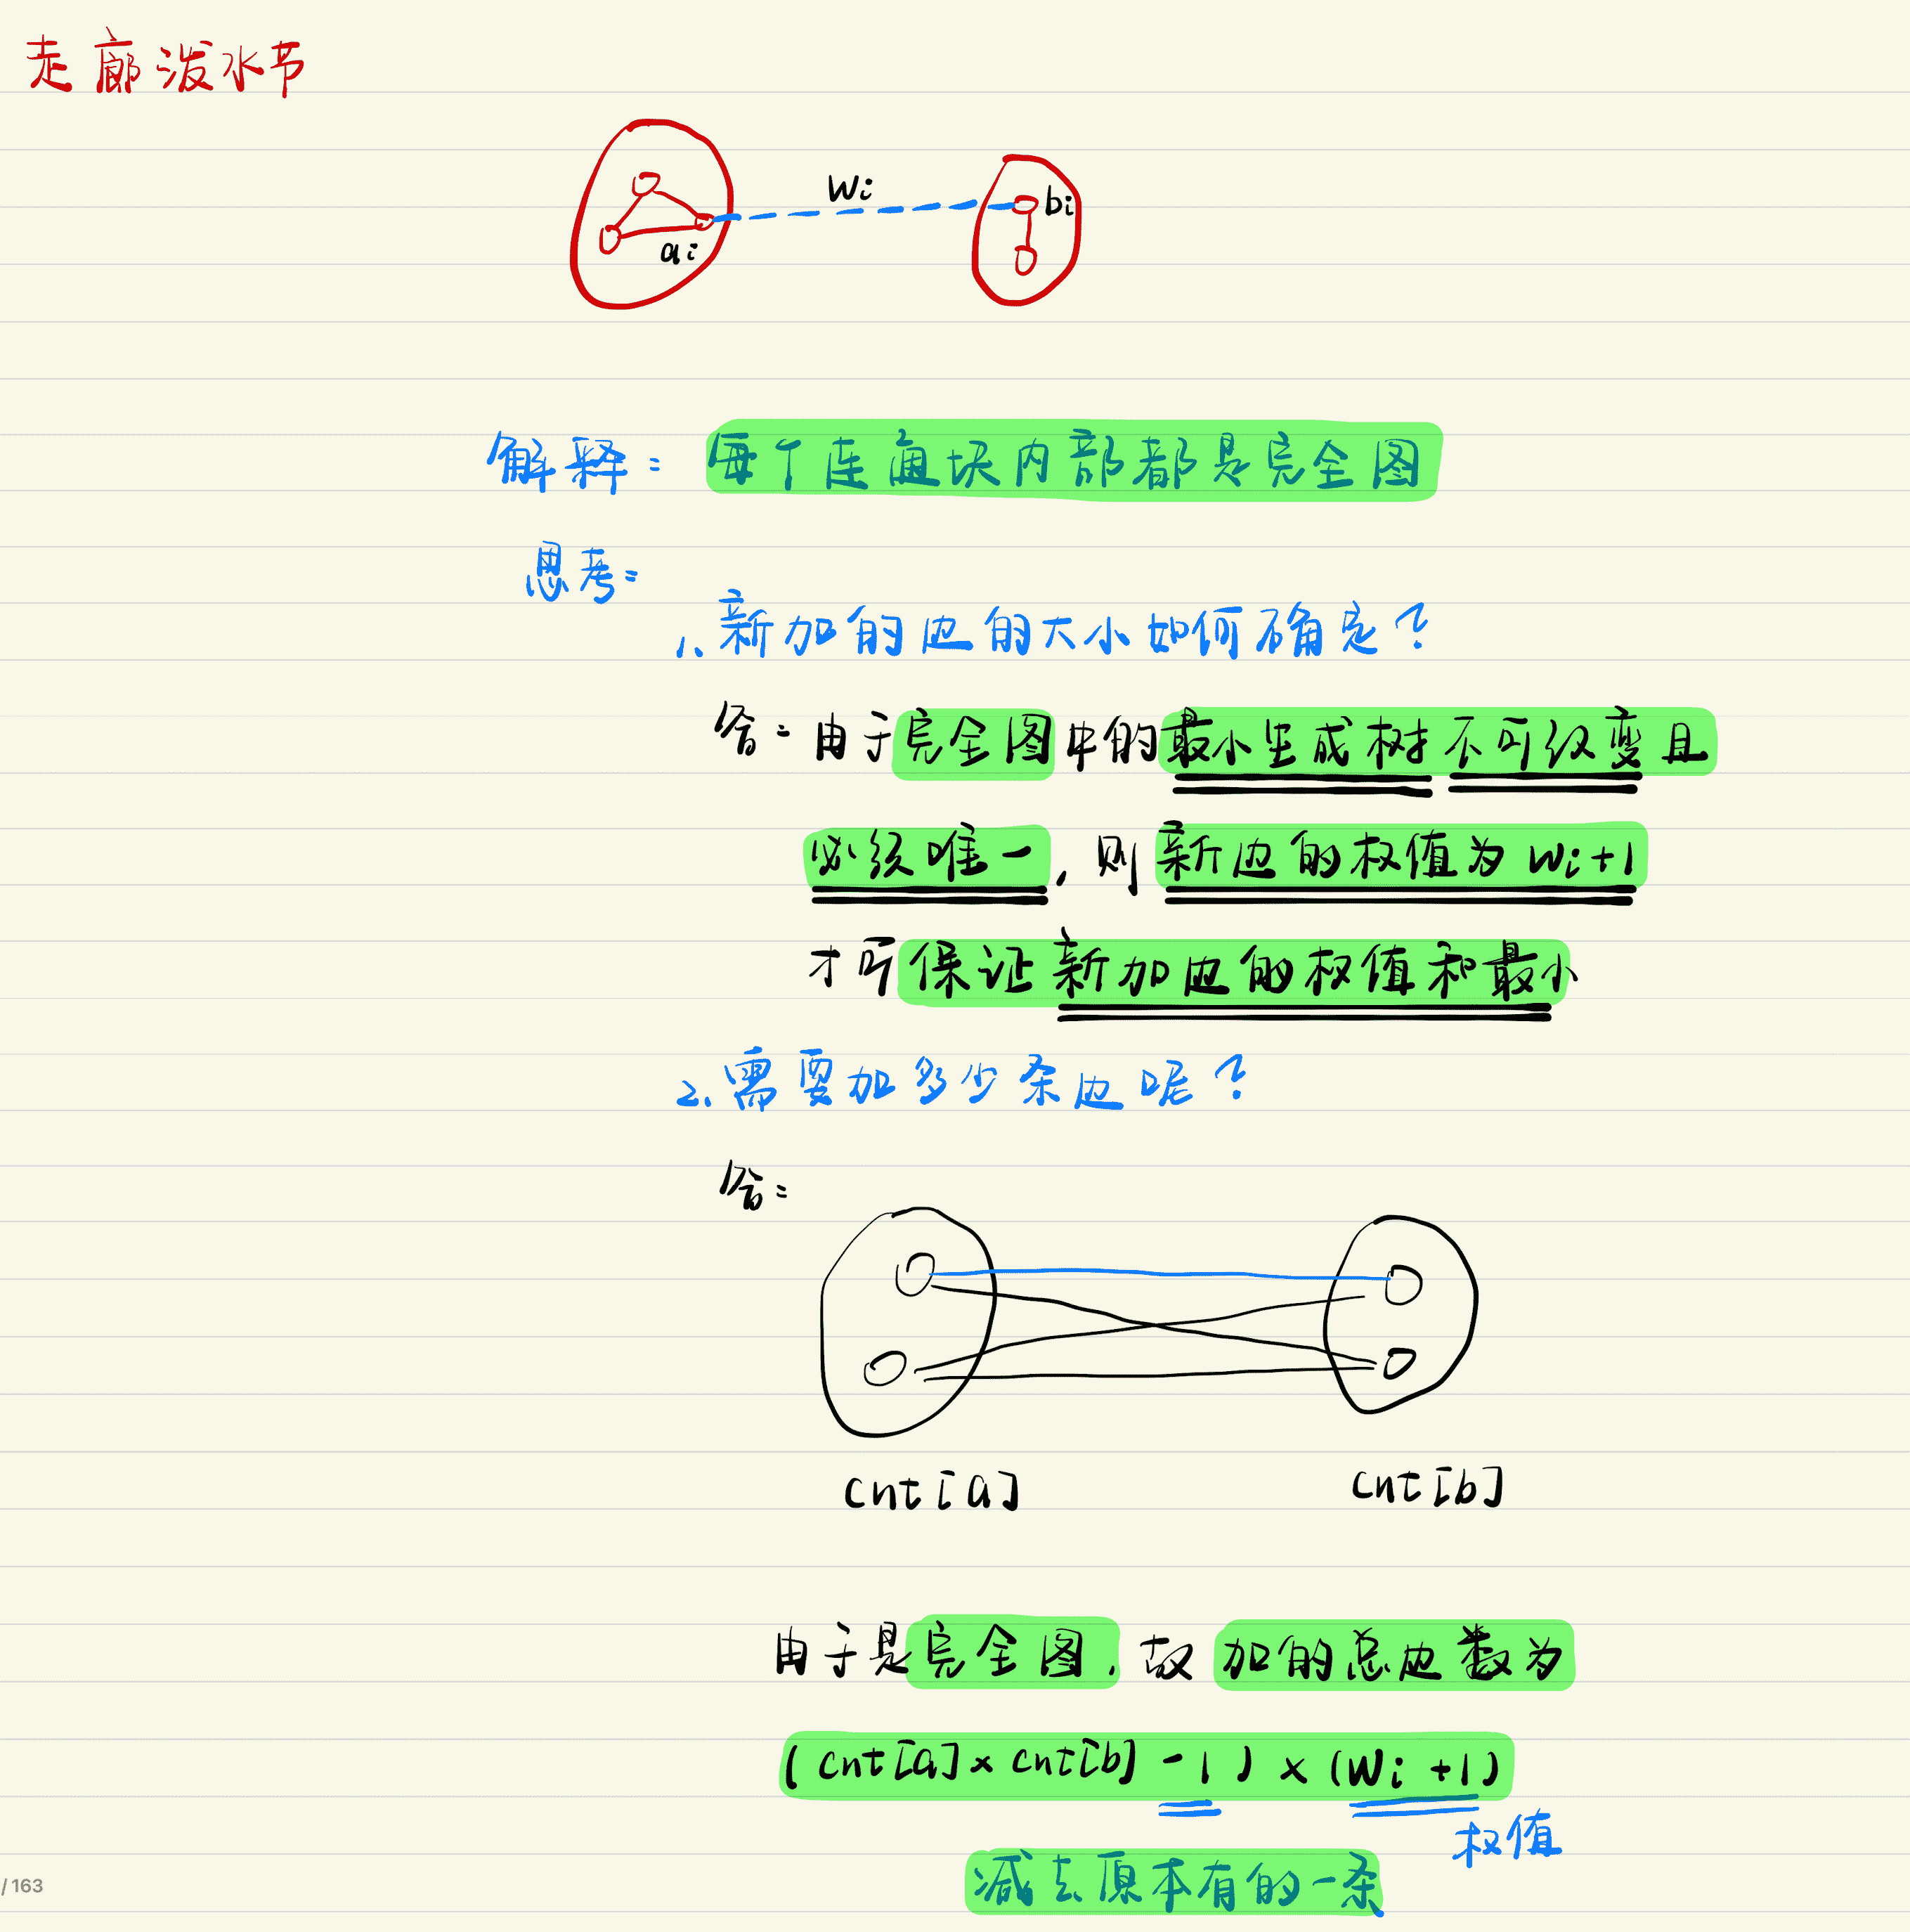 走廊泼水节
Wi
ai
bi
解释：每个连通块内部都是完全图
思考：
1、新加的边的大小如何确定？
答：由于完全图中的最小生成树不可改变且
必须唯一，则新边的权值为Wi+1
才可保证新加边的权值和最小
2、需要加多少条边呢？
答：
cnt[a]
cnt[b]
由于是完全图，故加的总边数为
(cnt[a]×cnt[b]-1)×(Wi+1)
权值
减去原本有的一条
/163